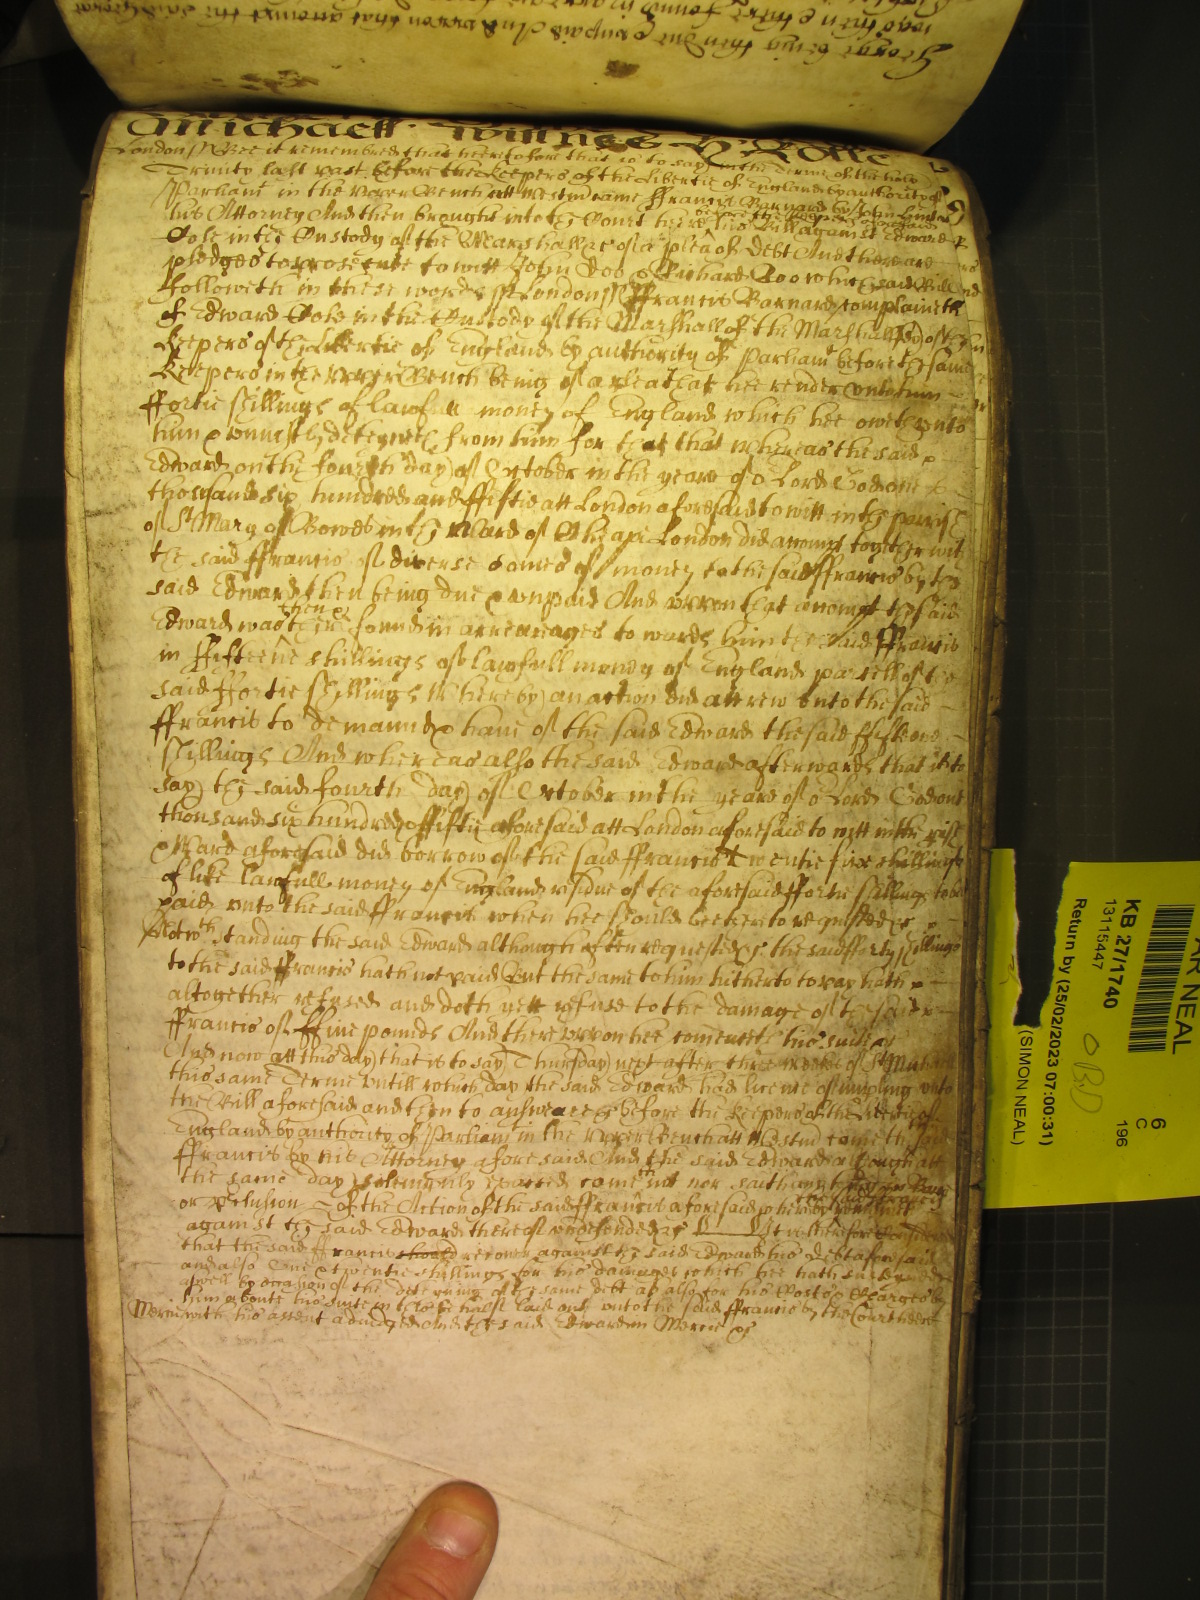 George being then due & unpaid And uppon that accompt the said George
was then & there found in arre
Michaell. Wittnes H Rolle
London ss Bee it remembred that heeretofore that is to say in the Terme of the holy
Trinity last past before the Keepers of the Libertie of England by authority of
Parliamt in the upper Bench att Westm came ffrancis Barnard by John
his Attorney And then brought into the Court heere his Bill against Edward
before the Keepers aforesaid
Cole in the Custody of the Marshall &c of a plea of Debt And there are
pledges to prosecute to witt John Doo & Richard Roo which said Bill
ffolloweth in these words ss London ss ffrancis Barnard complaineth
of Edward Cole in the Custody of the Marshall of the Marshallsey of the
Keepers of the Libertie of England by authority of Parliamt before the same
Keepers in the upper Bench being of a plea that hee render unto him
ffortie shillings of lawfull money of England which hee oweth unto
him & uniustly deteyneth from him for that that whereas the said
Edward on the fourth day of October in the yeare of or Lord God one
thousand six hundred and ffiftie att London aforesaid to witt in the parish
of St Mary of Bowes in the Ward of Cheape London did accompt together with
the said ffrancis of diverse somes of money to the said ffrancis by the
said Edward then being due & unpaid And uppon that accompt the said
Edward was then & there found in arrerages towards him the said ffrancis
in ffifteene shillings of lawfull money of England parcell of the
said ffortie shillings Whereby an action did accrew unto the said
ffrancis to demannd & have of the said Edward the said ffifteene
shillings And whereas also the said Edward afterwards that is to
say the said fourth day of October in the yeare of or Lord God one
thousand six hundred & ffiftie aforesaid att London aforesaid to witt in the pish
& Ward aforesaid did borrow of the said ffrancis twentie five shillings
of like lawfull money of England residue of the aforesaid ffortie shillings to be
paid unto the said ffrancis when hee should bee thereto requested &c
Notwthstanding the said Edward although often requested &c the said fforty shillings
to the said ffrancis hath not paid But the same to him hitherto to pay hath
altogether refused and doth yett refuse to the damage of the said
ffrancis of ffive pounds And thereuppon hee comenceth his suite &c
And now att this day that is to say Thursday next after three weekes of St Michaell
this same Terme untill which day the said Edward had licence of imparling unto
the Bill aforesaid and then to answeare &c before the Keepers of the libertie of
England by authority of Parliamt in the upper Bench att Westm cometh the said
ffrancis by his Attorney aforesaid And the said Edward although att
the same day solempnly exacted came not nor saith any thing in barre
or preclusion of the Action of the said ffrancis aforesaid whereby
the said ffrancis
against the said Edward thereof undefended &c It is therefore Considered
that the said ffrancis should recover against the said Edward his debt aforesaid
and also One & twentie shillings for his damages which hee hath susteyned
aswell by occasion of the deteyning of the same debt as also for his Costs & Charges by
him aboute his suite in this behalfe laid out unto the said ffrancis by the Court heere
with his assent adiudged And the said Edward in Mercie &c
Mercy
NEAL
KB 27/1740
13115447
Return by (25/02/2023 07:00:31)
(SIMON NEAL)
OBD
6
C
196